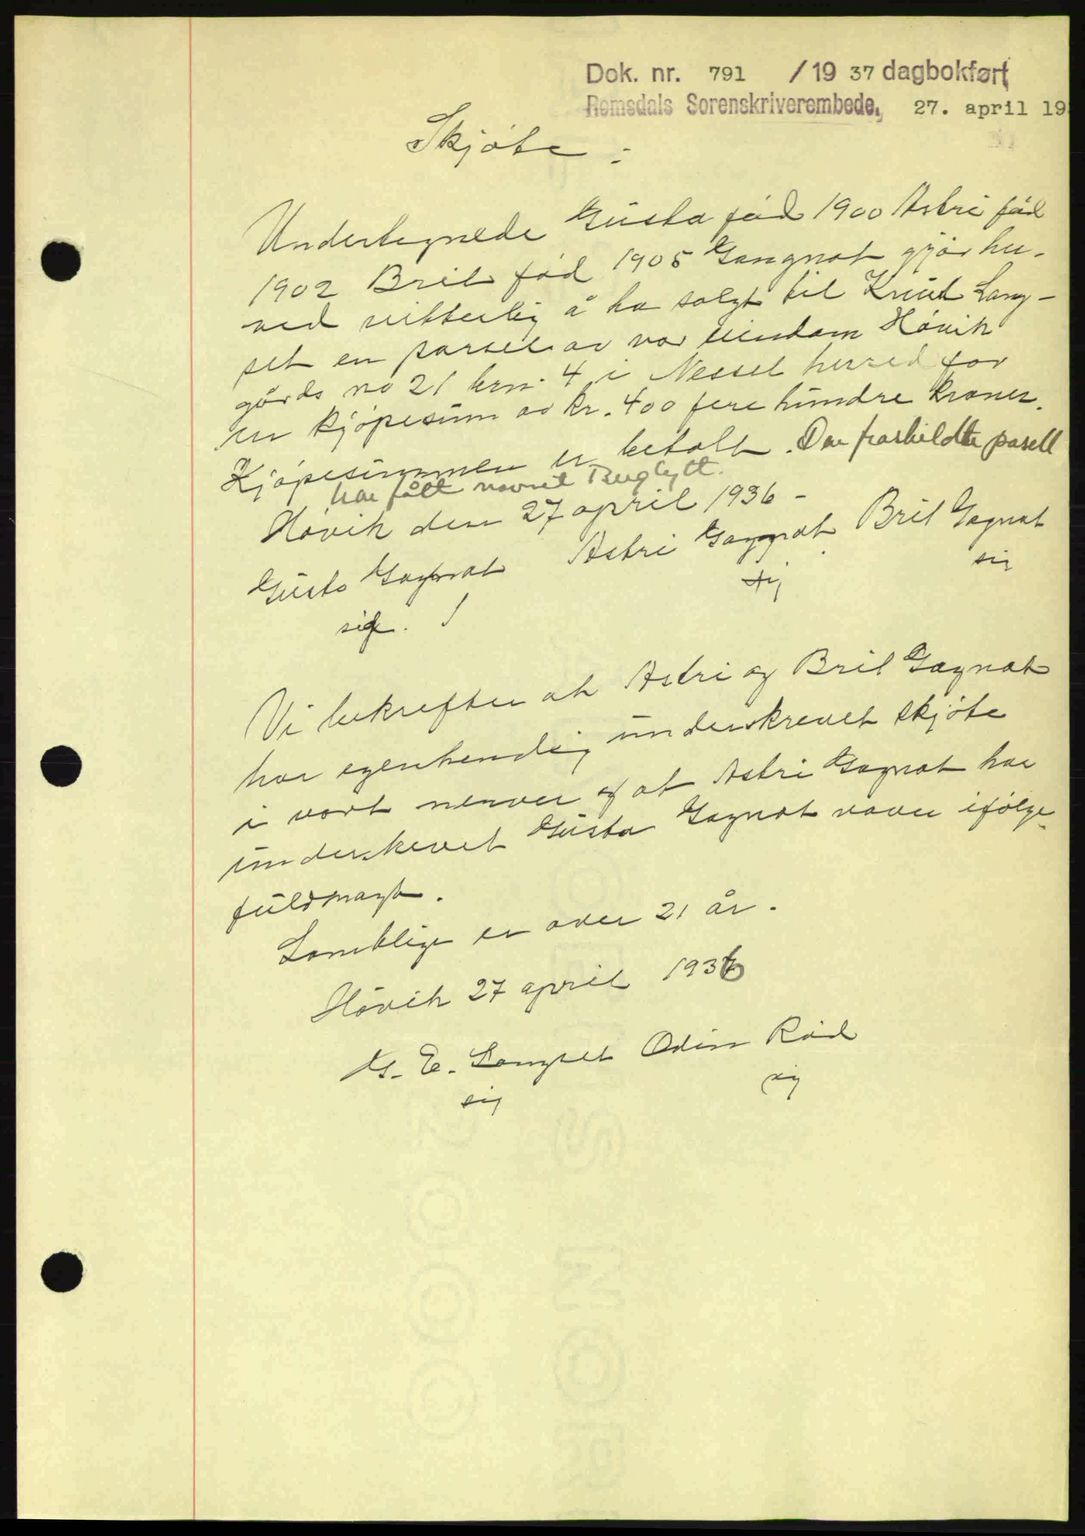 Dok. nr. 791 / 19 37 dagbokført
Romsdals Sorenskriverembede, 27. april 19
Skjøte :
Undertegnede Gusta fød 1900 Astri fød
1902 Bril fød 1905 Gagnat gjør her-
ved vitterlig å ha solgt til Knut Lang-
set en parsel av vor eiendom Håvik
gårds no 21 brn. 4 i Nesset herred for
en kjøpesum av kr. 400 fire hundre kroner.
Kjøpesummen er betalt. Den fraskildte parsell
har fått navnet Bugtytt.
Håvik den 27 april 1936 -
Gusta Gagnat Astri Gagnat Bril Gagnat
sig. sig sig
Vi bekrefter at Astri og Bril Gagnat
har egenhendig underskrevet skjøte
i vort nerver og at Astri Gagnat har
underskevet Gusta Gagnat navn ifølge
fuldmagt.
Samtlige er over 21 år.
Håvik 27 april 1936
E. Langset Odin Rød
sig sig